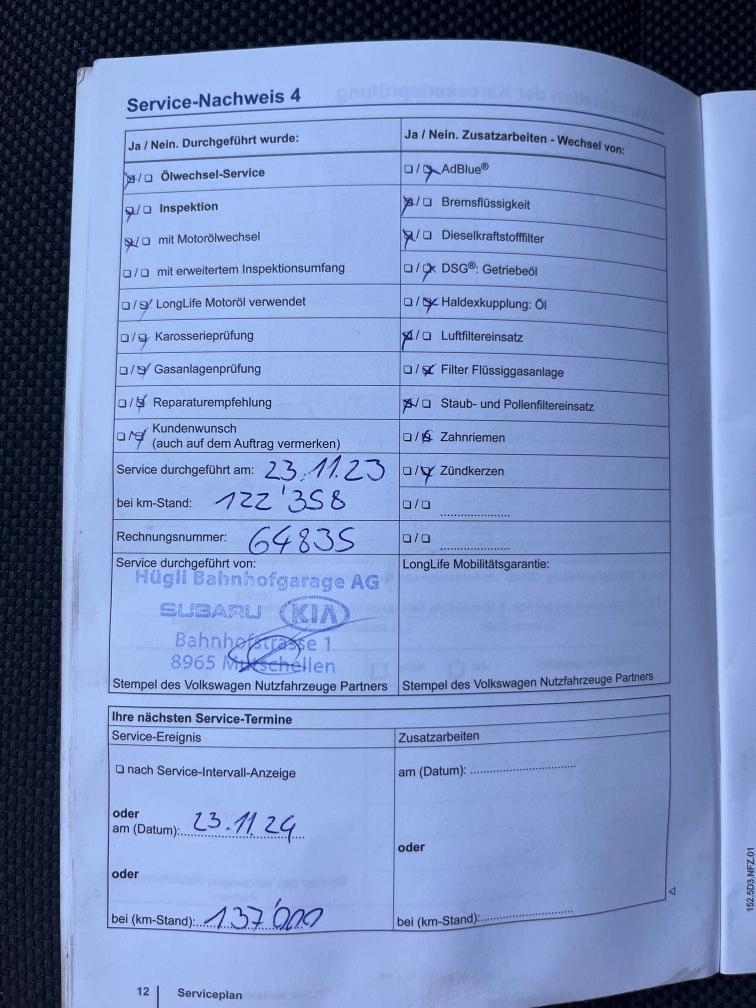 Service-Nachweis 4
Ja / Nein. Durchgeführt wurde:
Ölwechsel-Service
Inspektion
mit Motorölwechsel
mit erweitertem Inspektionsumfang
LongLife Motoröl verwendet
Karosserieprüfung
Gasanlagenprüfung
Reparaturempfehlung
Kundenwunsch
(auch auf dem Auftrag vermerken)
Service durchgeführt am: 23.11.23
bei km-Stand: 122'358
Rechnungsnummer: 64835
Service durchgeführt von:
Hügli Bahnhofgarage AG
SUBARU KIA
Bahnhofstrasse 1
8965 Mutschellen
Stempel des Volkswagen Nutzfahrzeuge Partners
Ja / Nein. Zusatzarbeiten - Wechsel von:
AdBlue®
Bremsflüssigkeit
Dieselkraftstofffilter
DSG®: Getriebeöl
Haldexkupplung: Öl
Luftfiltereinsatz
Filter Flüssiggasanlage
Staub- und Pollenfiltereinsatz
Zahnriemen
Zündkerzen
LongLife Mobilitätsgarantie:
Stempel des Volkswagen Nutzfahrzeuge Partners
Ihre nächsten Service-Termine
Service-Ereignis
nach Service-Intervall-Anzeige
oder
am (Datum): 23.11.24
oder
bei (km-Stand): 137'000
Zusatzarbeiten
am (Datum):
oder
bei (km-Stand):
12 | Serviceplan
152.5D3.NFZ.01